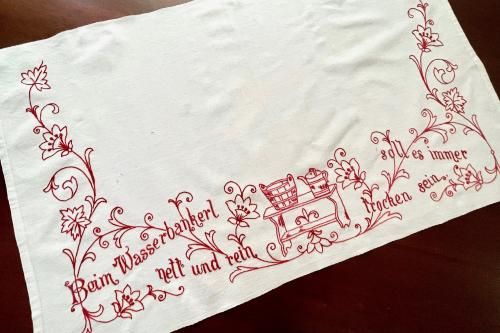 Beim Wasserbankerl
nett und rein,
soll es immer
trocken sein.